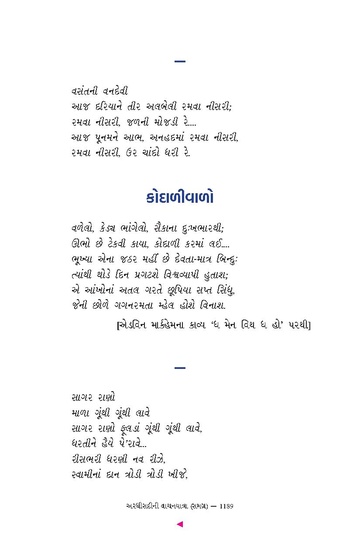 વસંતની વનદેવી
આજ દરિયાને તીર અલબેલી રમવા નીસરી;
રમવા નીસરી, જળની મોજડી રે....
આજ પૂનમને આભ, અનહદમાં રમવા નીસરી,
રમવા નીસરી, ઉર ચાંદો ધરી રે.
કોદાળીવાળો
વળેલો, કેડ્ય ભાંગેલો, સૈકાના દુઃખભારથી;
ઊભો છે ટેકવી કાયા, કોદાળી કરમાં લઈ....
ભૂખ્યા એના જઠર મહીં છે દેવતા-માત્ર બિન્દુઃ
ત્યાંથી થોડે દિન પ્રગટશે વિશ્વવ્યાપી હુતાશ;
એ આંખોનાં અતલ ગરતે છૂપિયા સપ્ત સિંધુ,
જેની છોળે ગગનરમતા મ્હેલ હોશે વિનાશ.
[એડવિન માર્કહેમના કાવ્ય ‘ધ મેન વિથ ધ હો’ પરથી]
સાગર રાણો
માળા ગૂંથી ગૂંથી લાવે
સાગર રાણો ફૂલડાં ગૂંથી ગૂંથી લાવે,
ધરતીને હૈયે પે’રાવે...
રીસભરી ધરણી નવ રીઝે,
સ્વામીનાં દાન ત્રોડી ત્રોડી ખીજે,
અરધીસદીની વાચનયાત્રા (સમગ્ર) — 1189